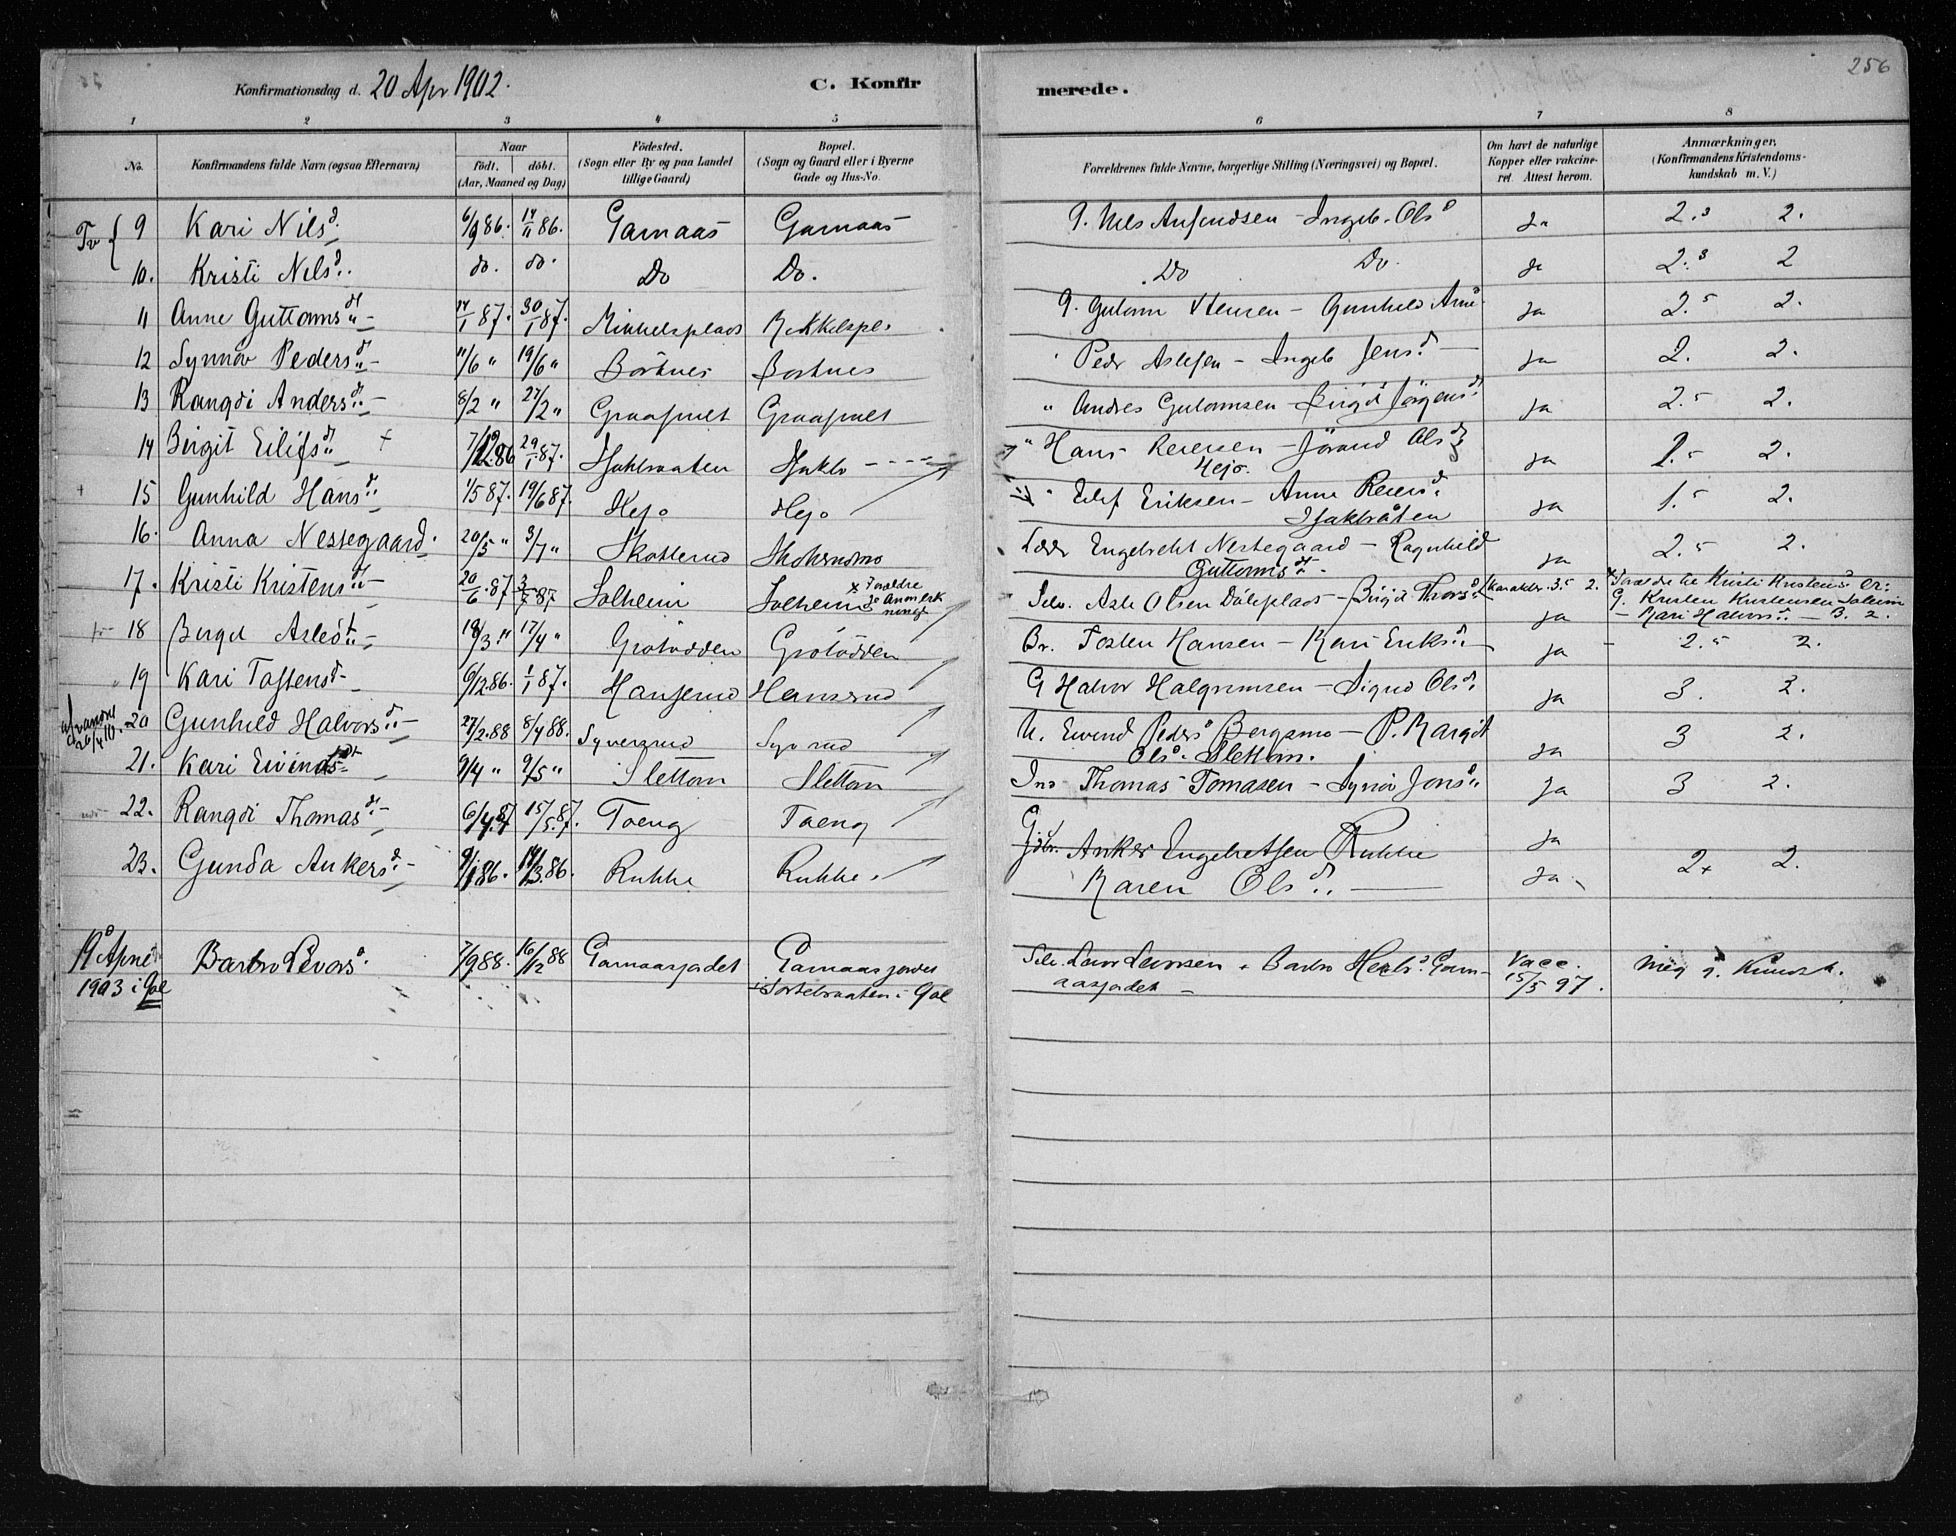 256
Konfirmationsdag d. 20 Apr 1902. C. Konfirmerede.
1 2 3 4 5 6 7 8
No. Konfirmandens fulde Navn (ogsaa Efternavn) Naar födt. döbt. (Aar, Maaned og Dag) Födested. (Sogn eller By og paa Landet tillige Gaard) Bopæl. (Sogn og Gaard eller i Byerne Gade og Hus-No. Forældrenes fulde Navne, borgerlige Stilling (Næringsvei) og Bopæl. Om havt de naturlige Kopper eller vakcineret. Attest herom. Anmærkninger. (Konfirmandens Kristendomskundskab m. V.)
Tv { 9 Kari Nilsd. 6/9 86. 14/11 86. Garnaas Garnaas G. Nils Anfindsen - Ingeb. Olsd Ja 2.3 2.
10. Kristi Nilsd. do. do. Do Do. Do Do. Ja 2.3 2
11 Anne Guttormsd. 14/1 87. 30/1 87. Mikkelsplads Mikkelspl. G. Gutorm - Gunhild Ja 2.5 2.
12 Synnøv Pedersd. 11/6 " 19/6 " Börtnes Bortnes Peder Aslesen - Ingeb Jensd. Ja 2. 2.
13 Rangdi Andersd. 8/2 " 27/2 " Graaput Graaput " Andres Gutormsen - Birgit Jörgensd. Ja 2.5 2.
14 Birgit Eilifsd. + 7/12.86 29/1.87. Isakbraaten Isakb - - - - " Hans Reiersen - Jörand Olsd. Ja 2.5 2.
Hejo.
15 Gunhild Hansd. 1/5 87. 19/6 87. Hejo Hejo " Eilif Eriksen - Anne Reiersd. Ja 1.5 2.
Isakbråten
16. Anna Nestegaard. 20/5 " 3/7 " Skotterud Engebrekt Nestegaard - Ragnhild Ja 2.5 2.
Guttormsd.
17. Kristi Kristensd. 20/6.87 3/7 87 Solheim Solheim x Foreldre se Anmerkninger Selv. Asle Olsen Döleplads - Birgit Thorsd. Karakter 3.5 2. Ja x Foreldre til Kristi Kristensd. er:
G. Kristen Kristensen Solheim
- Kari Halvorsd. - B. 2.
18 Berget Aslesd. 18/3 " 17/4 " Grotødden Grotødden Br. Tosten Hansen - Kari Eriksd. Ja 2.5 2.
19 Kari Tostensd. 6/12 86. 1/1 87. Hanserud Hanserud G Halvor Halgrimsen - Sigrid Olsd. Ja 3. 2.
26/4 10. 20 Gunhild Halvorsd. 27/2.88 8/4 88. Syversrud Eivind Peders Bergsmo - P. Margit Ja 3 2.
Olsd. Slettom.
21. Kari Eivindsdt 9/4 " 9/5 " Slettom Slettom Ind Thomas Tomasen - Synöv Jonsd. Ja 3 2.
22. Rangdi Thomasd. 6/4.87 15/5.87. Toeng Toeng G Ja
23. Gunda Ankersd. 9/1 86. 14/3.86. Rukke Rukke. Gdbr. Anker Engebretsen Rukke Ja 2+ 2.
Karen Olsd.
19d April
1903 i Gol Barbro Levorsd. 7/9 88. 16/12 88 Garnaasjordet Garnaasjordet Selv. Levor Levorsen + Barbro Herbrd. Garnaasjordet - Vacc. 15/5 97. Meg g. Kundsk.
i Gol